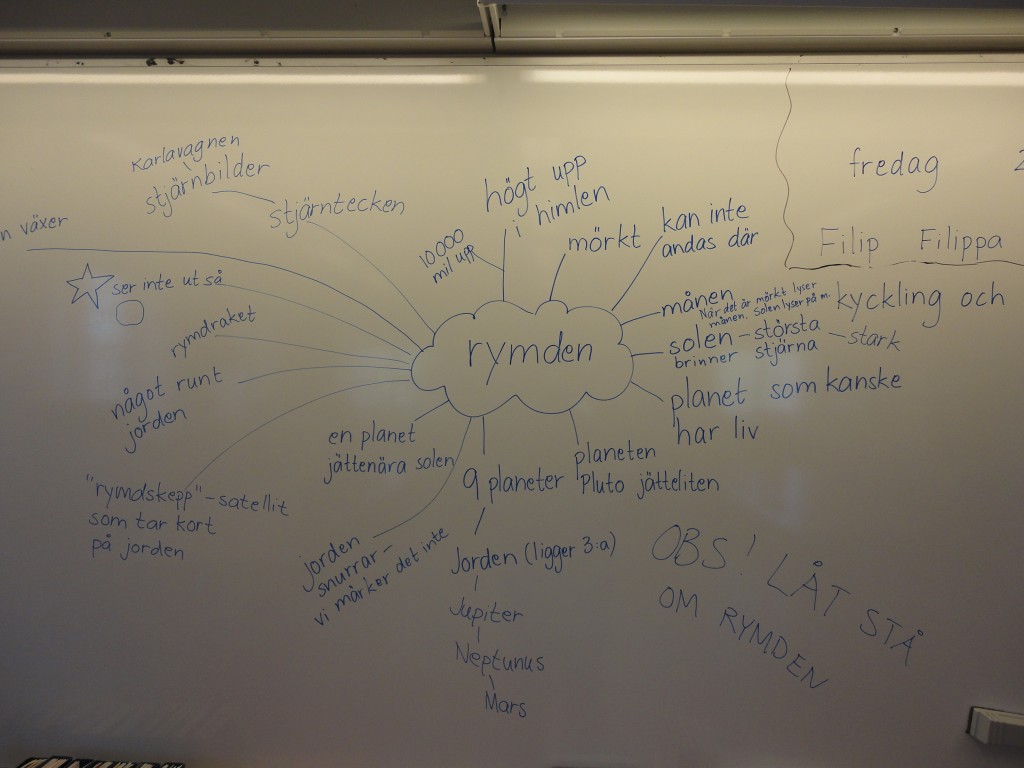 Karlavagnen
stjärnbilder
stjärntecken
n växer
ser inte ut så
rymdraket
något runt
jorden
"rymdskepp" - satellit
som tar kort
på jorden
10000
mil upp
högt upp
i himlen
mörkt
kan inte
andas där
rymden
månen
När det är mörkt lyser
månen. Solen lyser på m.
solen - största - stark
brinner stjärna
planet som kanske
har liv
en planet
jättenära solen
9 planeter
planeten
Pluto jätteliten
jorden
snurrar -
vi märker det inte
Jorden (ligger 3:a)
Jupiter
Neptunus
Mars
fredag 2
Filip Filippa
kyckling och
OBS! LÅT STÅ
OM RYMDEN